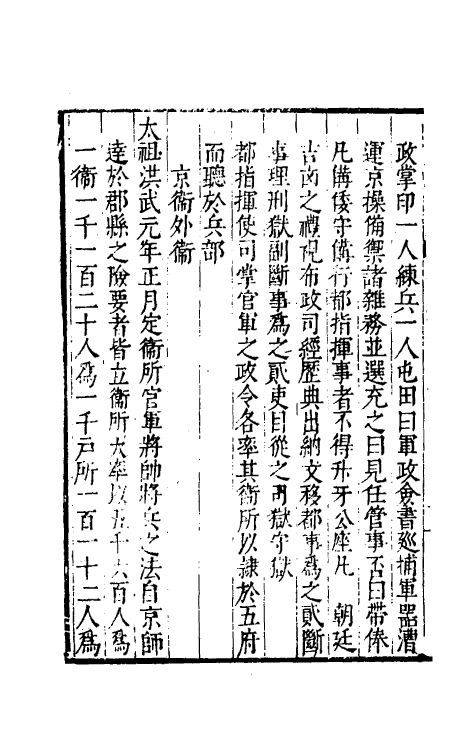 政掌印一人練兵一人屯田曰軍政僉書廵捕軍器漕
運京操備禦諸雜務並選充之曰見任管事否曰帶俸
凡備倭守備行都指揮事者不得升牙公座凡　朝廷
吉凶之禮視布政司經歷典出納文移都事爲之貳斷
事理刑獄副斷事爲之貳吏目從之司獄守獄
都指揮使司掌官軍之政令各率其衞所以隷於五府
而聽於兵部
京衞外衞
太祖洪武元年正月定衞所官軍將帥將兵之法自京師
達於郡縣之險要者皆立衞所大率以五千六百人爲
一衞一千一百二十人爲一千戸所一百一十二人爲